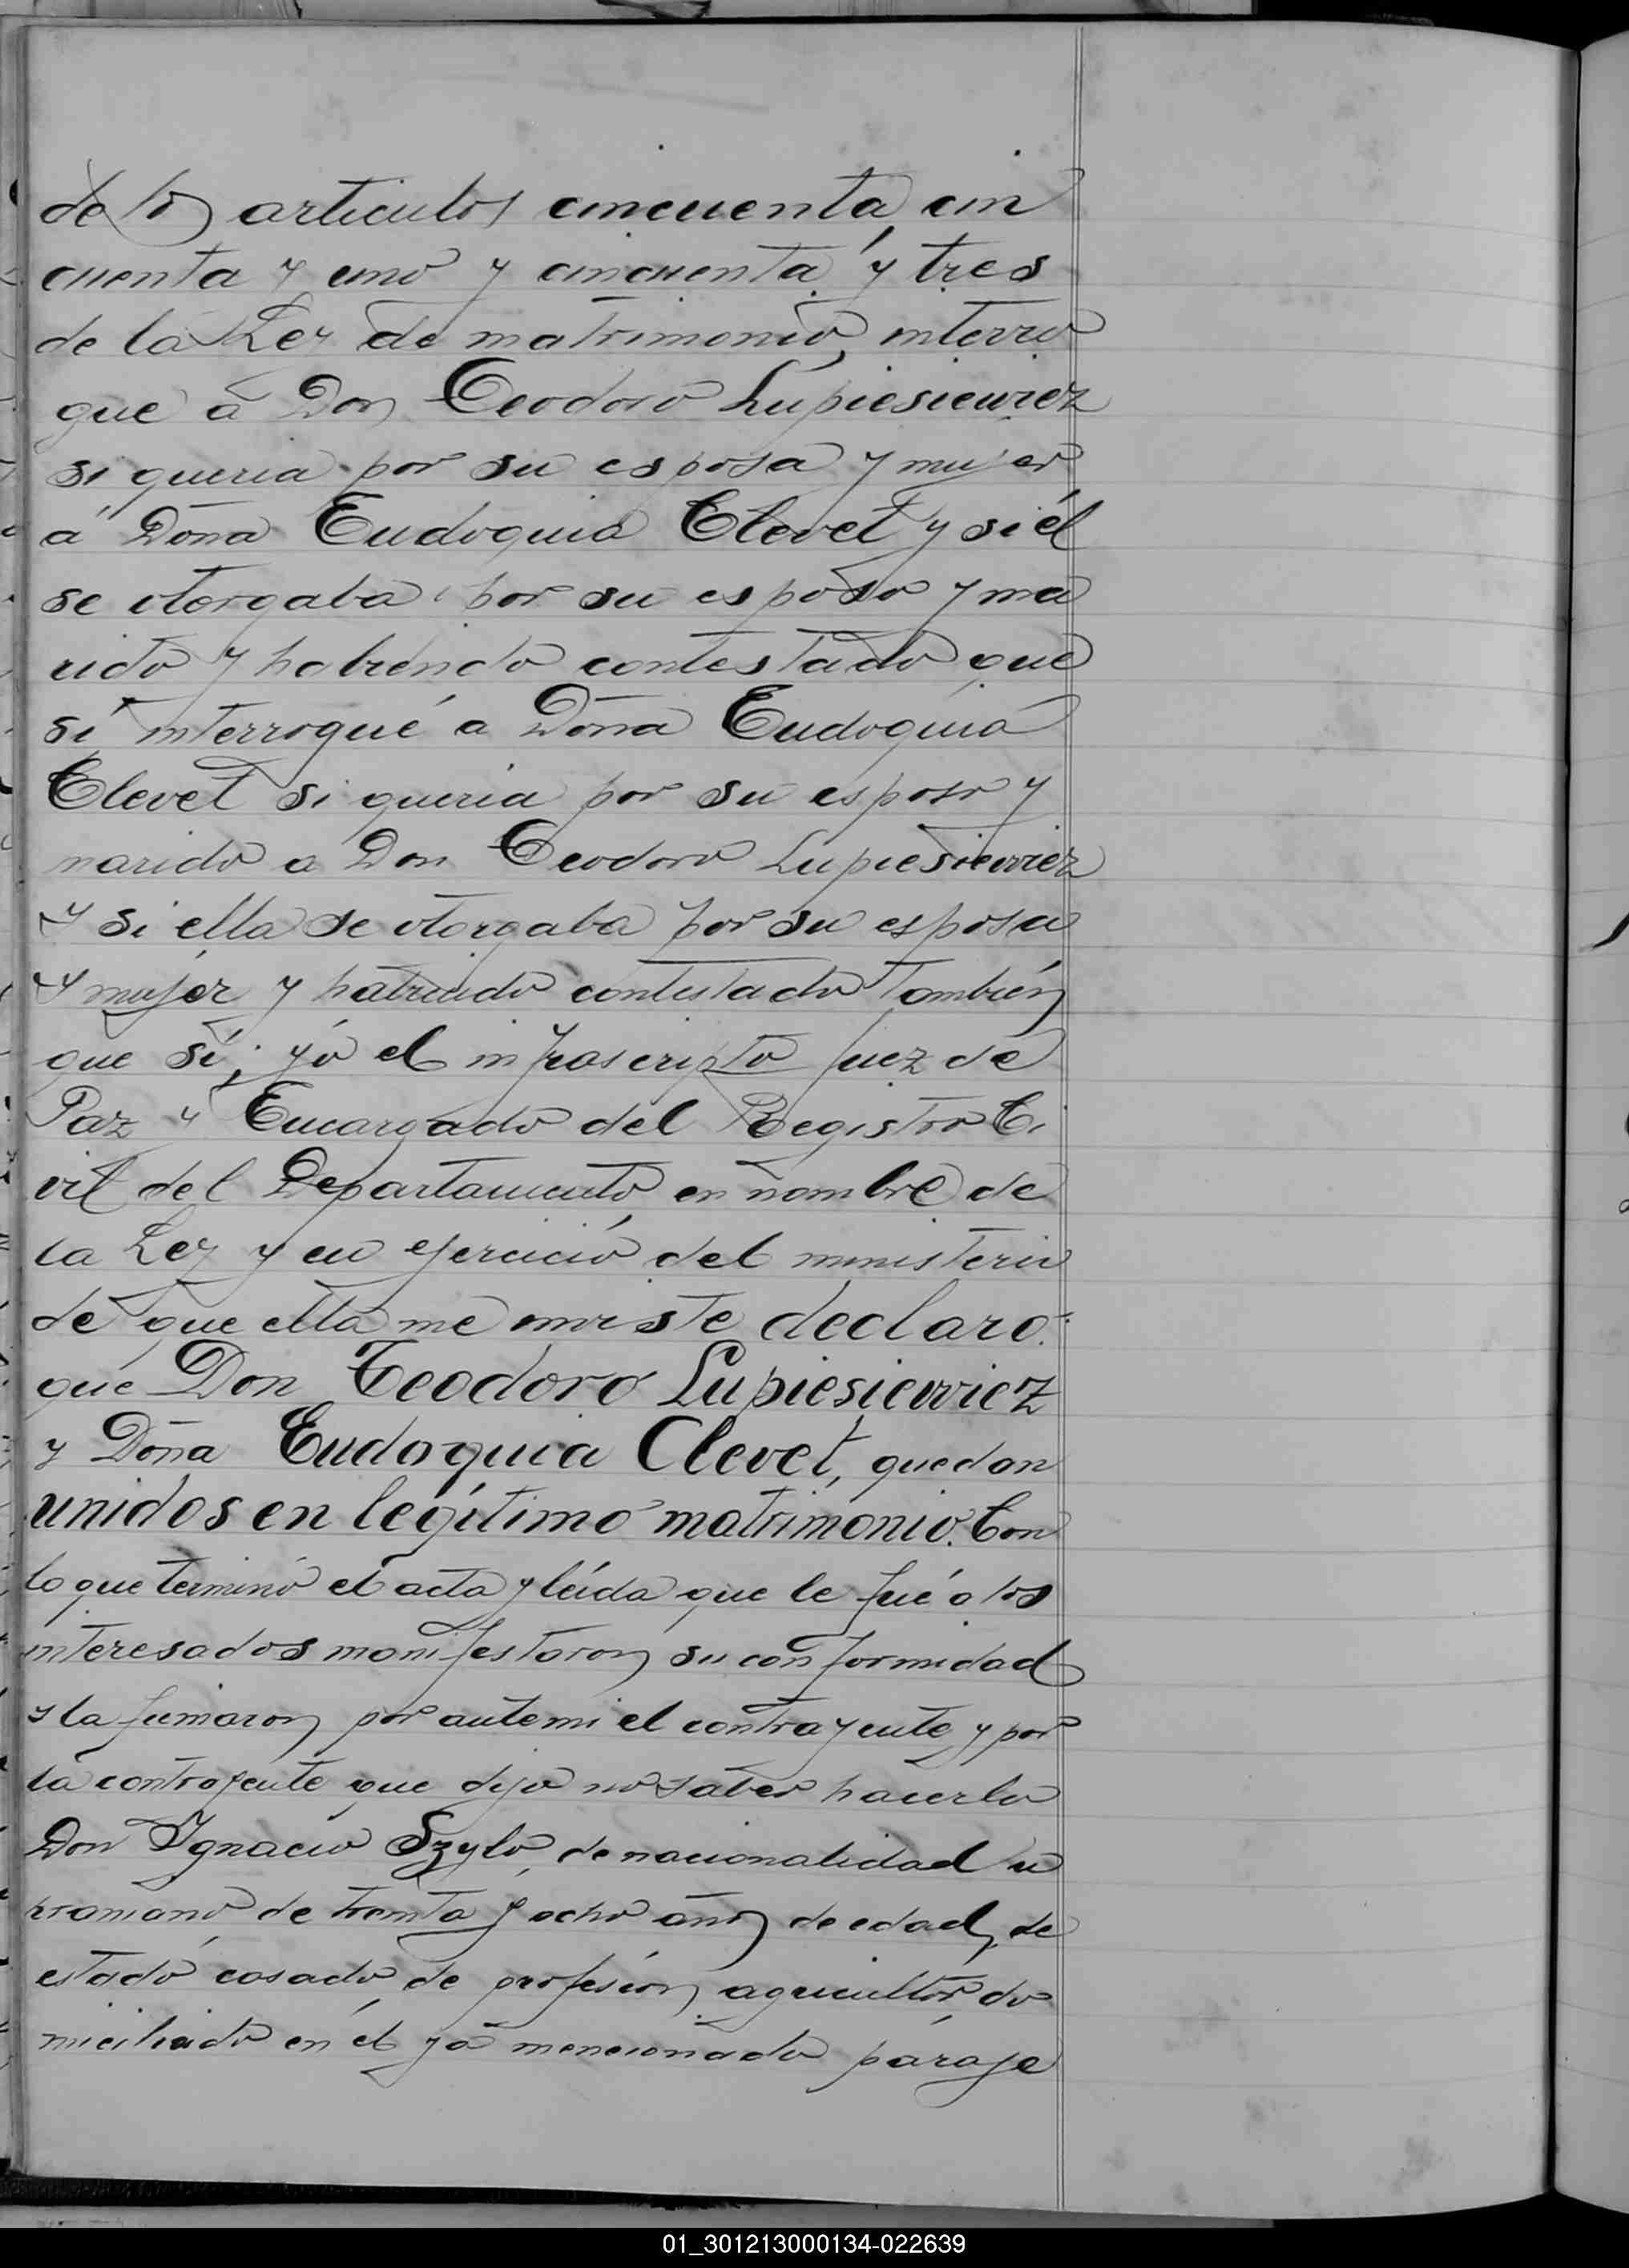 de los articulos cincuenta, cin
cuenta y uno y cincuenta y tres
de la Ley de matrimonio, interro
gue á Don Teodoro Lupiesiewiez
si queria por su esposa y mujer
á Doña Eudoquia Clevet y si él
se otorgaba por su esposo y ma
rido y habiendo contestado que
sí interrogué a Doña Eudoquia
Clevet si queria por su esposo y
marido a Don Teodoro Lupiesiewiez
y si ella se otorgaba por su esposa
y mujer y habiendo contestado también
que sí; yó el infrascripto Juez de
Paz y Encargado del Registro Ci
vil del Departamento, en nombre de
la Ley y en ejercicio del ministerio
de que ella me inviste declaro:
que Don Teodoro Lupiesiewiez
y Doña Eudoquia Clevet, quedan
unidos en legítimo matrimonio. Con
lo que terminó el acta y leída que le fué a los
interesados manifestaron su conformidad
y la firmaron por ante mi el contrayente y por
la contrayente que dijo no saber hacerlo
Don Ignacio Szylo, de nacionalidad u
kraniano, de treinta y ocho años de edad, de
estado casado, de profesión, agricultor, do
miciliado en el ya mencionado paraje
01_301213000134-022639